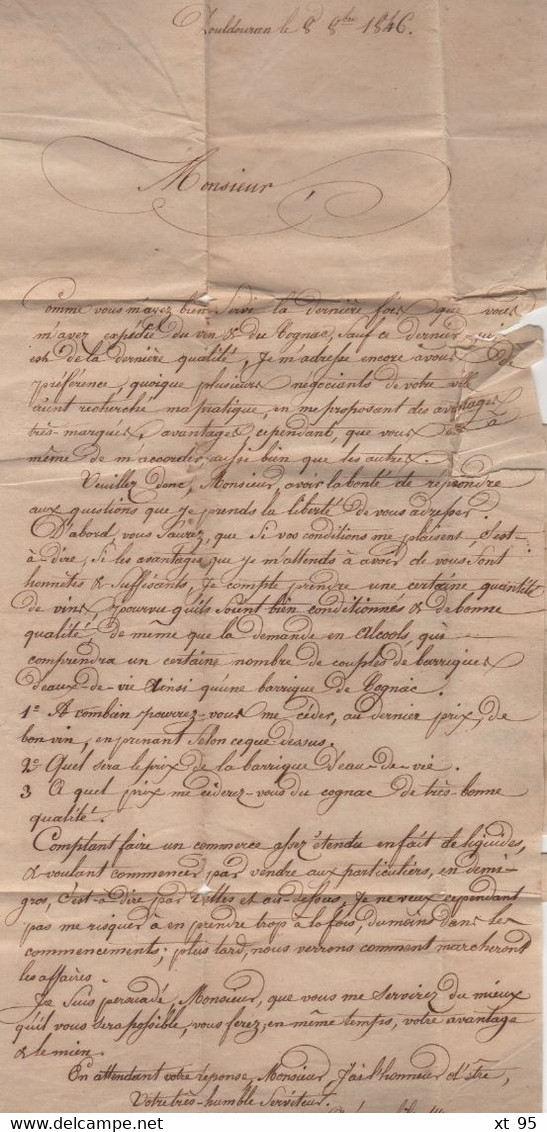 Plouldouran le 8 8bre 1846.
Monsieur
Comme vous m'avez bien servi la dernière fois que vous
m'avez expédié du vin & du Cognac, sauf ce dernier qui
est de la dernière qualité, Je m'adresse encore a vous de
préférence, quoique plusieurs négociants de votre ville
aient recherché ma pratique, en me proposant des avantages
très-marqués, avantages, cependant, que vous à
même de m'accorder, aussi bien que les autres.
Veuillez donc, Monsieur, avoir la bonté de répondre
aux questions que je prends la liberté de vous adresser.
D'abord, vous saurez, que si vos conditions me plaisent, c'est-
à-dire, si les avantages que je m'attends à avoir de vous sont
honnêtes & suffisants, Je compte prendre une certaine quantité
de vins, pourvu qu'ils soient bien conditionnés & de bonne
qualité, de même que la demande en alcools, qui
comprendra un certaine nombre de couples de barriques
d'eaux-de-vie ainsi qu'une barrique de Cognac.
1º A combien pourrez-vous me céder, au dernier prix, de
bon vin, en prenant selon ce que dessus.
2º Quel sera le prix de la barrique d'eau-de-vie.
3 A quel prix me cèderez-vous du cognac de très-bonne
qualité.
Comptant faire un commerce assez étendu en fait de liquides,
& voulant commencer par vendre aux particuliers, en demi-
gros, c'est-à-dire par veltes et au-dessous, Je ne veux cependant
pas me risquer à en prendre trop à la fois, du moins dans les
commencements; plus tard, nous verrons comment marcheront
les affaires.
Je suis persuadé, Monsieur, que vous me servirez du mieux
qu'il vous sera possible, vous ferez, en même temps, votre avantage
& le mien.
En attendant votre réponse, Monsieur, J'ai l'honneur d'être,
Votre très-humble Serviteur.
delcampe.net
xt 95